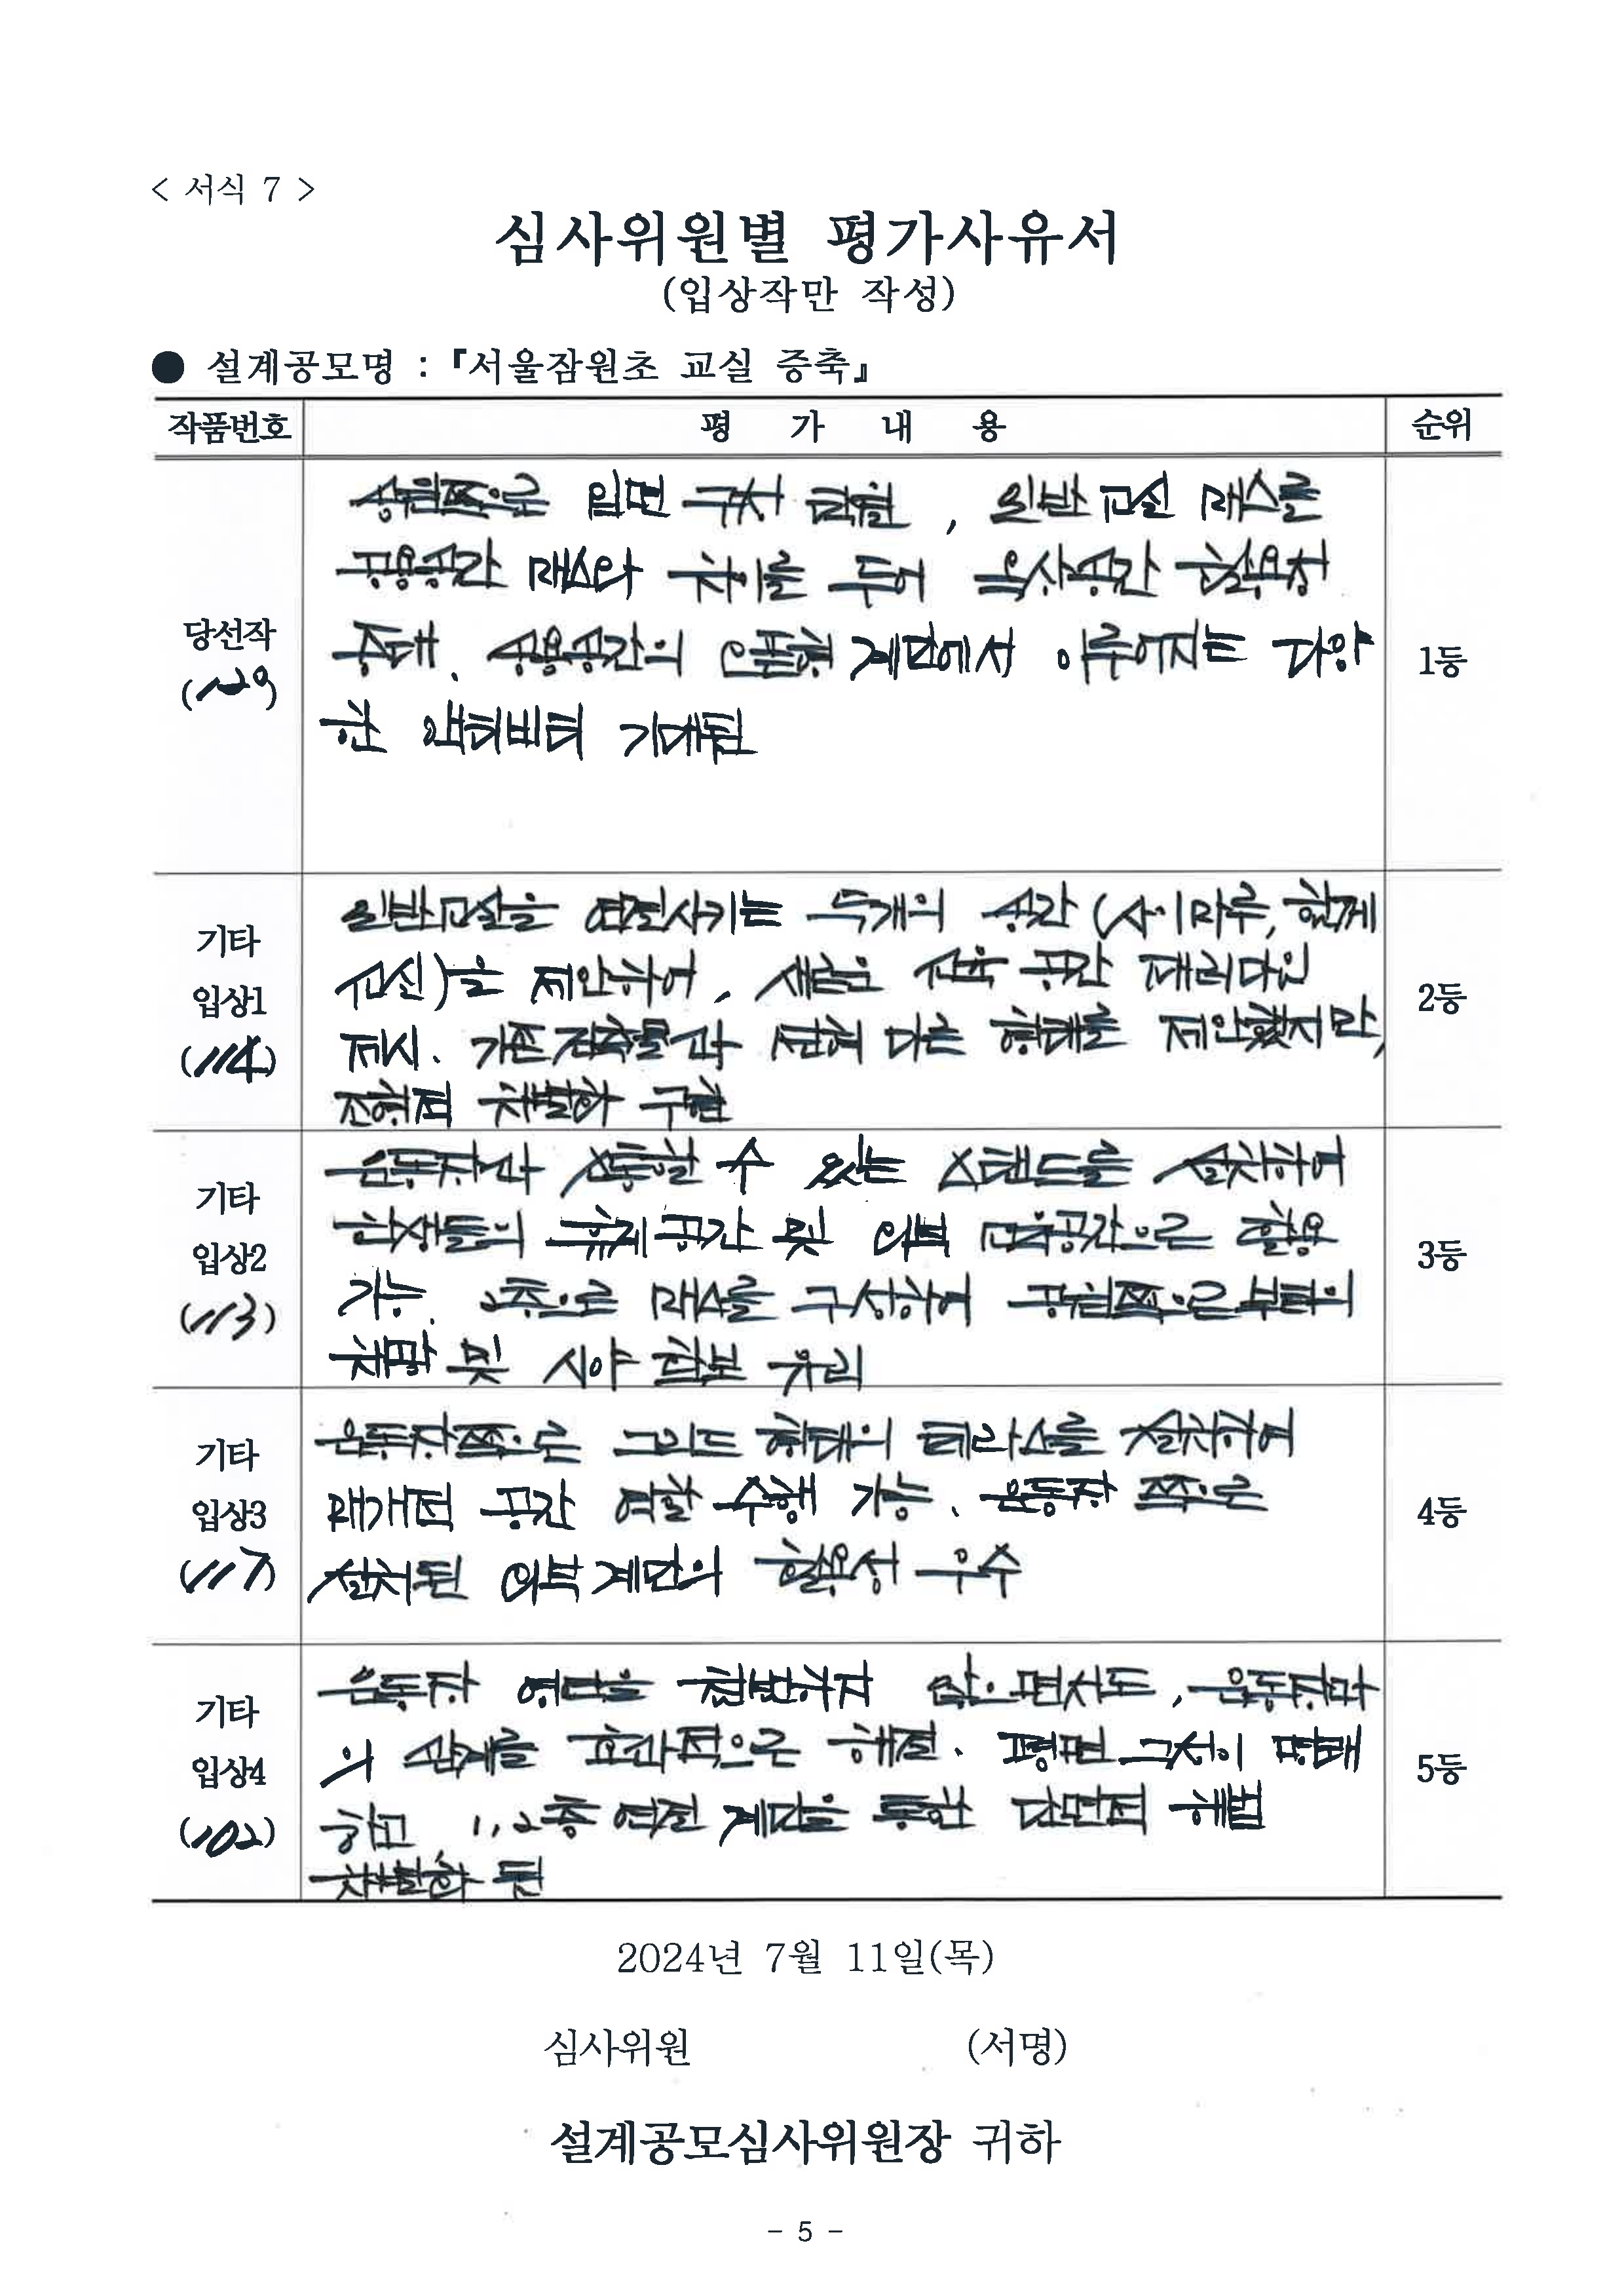 < 서식 7 >
심사위원별 평가사유서
(입상작만 작성)
● 설계공모명 : 『서울잠원초 교실 증축』
작품번호 평 가 내 용 순위
당선작
(120)
입면 구사 탁월, 일반교실 매스를
공용공간 매스와 차이를 두어 옥상공간 활용성
증대. 공용공간의 오픈형 계단에서 이루어지는 다양
한 액티비티 기대됨
1등
기타
입상1
(114)
일반교실을 연결시키는 두개의 공간 (사이마루, 함께
교실)을 제안하여, 새로운 교육 공간 패러다임
제시. 기존건축물과 전혀 다른 형태를 제안했지만,
조형적 차별화 구현
2등
기타
입상2
(113)
운동장과 소통할 수 있는 스탠드를 설치하여
학생들의 휴게공간 및 외부 교육공간으로 활용
가능. 2층으로 매스를 구성하여 부터의
차폐 및 시야 확보 유리
3등
기타
입상3
(117)
운동장쪽으로 그리드 형태의 테라스를 설치하여
매개적 공간 역할 수행 가능. 운동장 쪽으로
설치된 외부계단의 활용성 우수
4등
기타
입상4
(102)
운동장 영역을 침범하지 않으면서도, 운동장과
의 관계를 효과적으로 해결. 평면구성이 명쾌
하고, 1,2층 연결 계단을 통한 단면적 해법
차별화 됨
5등
2024년 7월 11일(목)
심사위원 (서명)
설계공모심사위원장 귀하
- 5 -